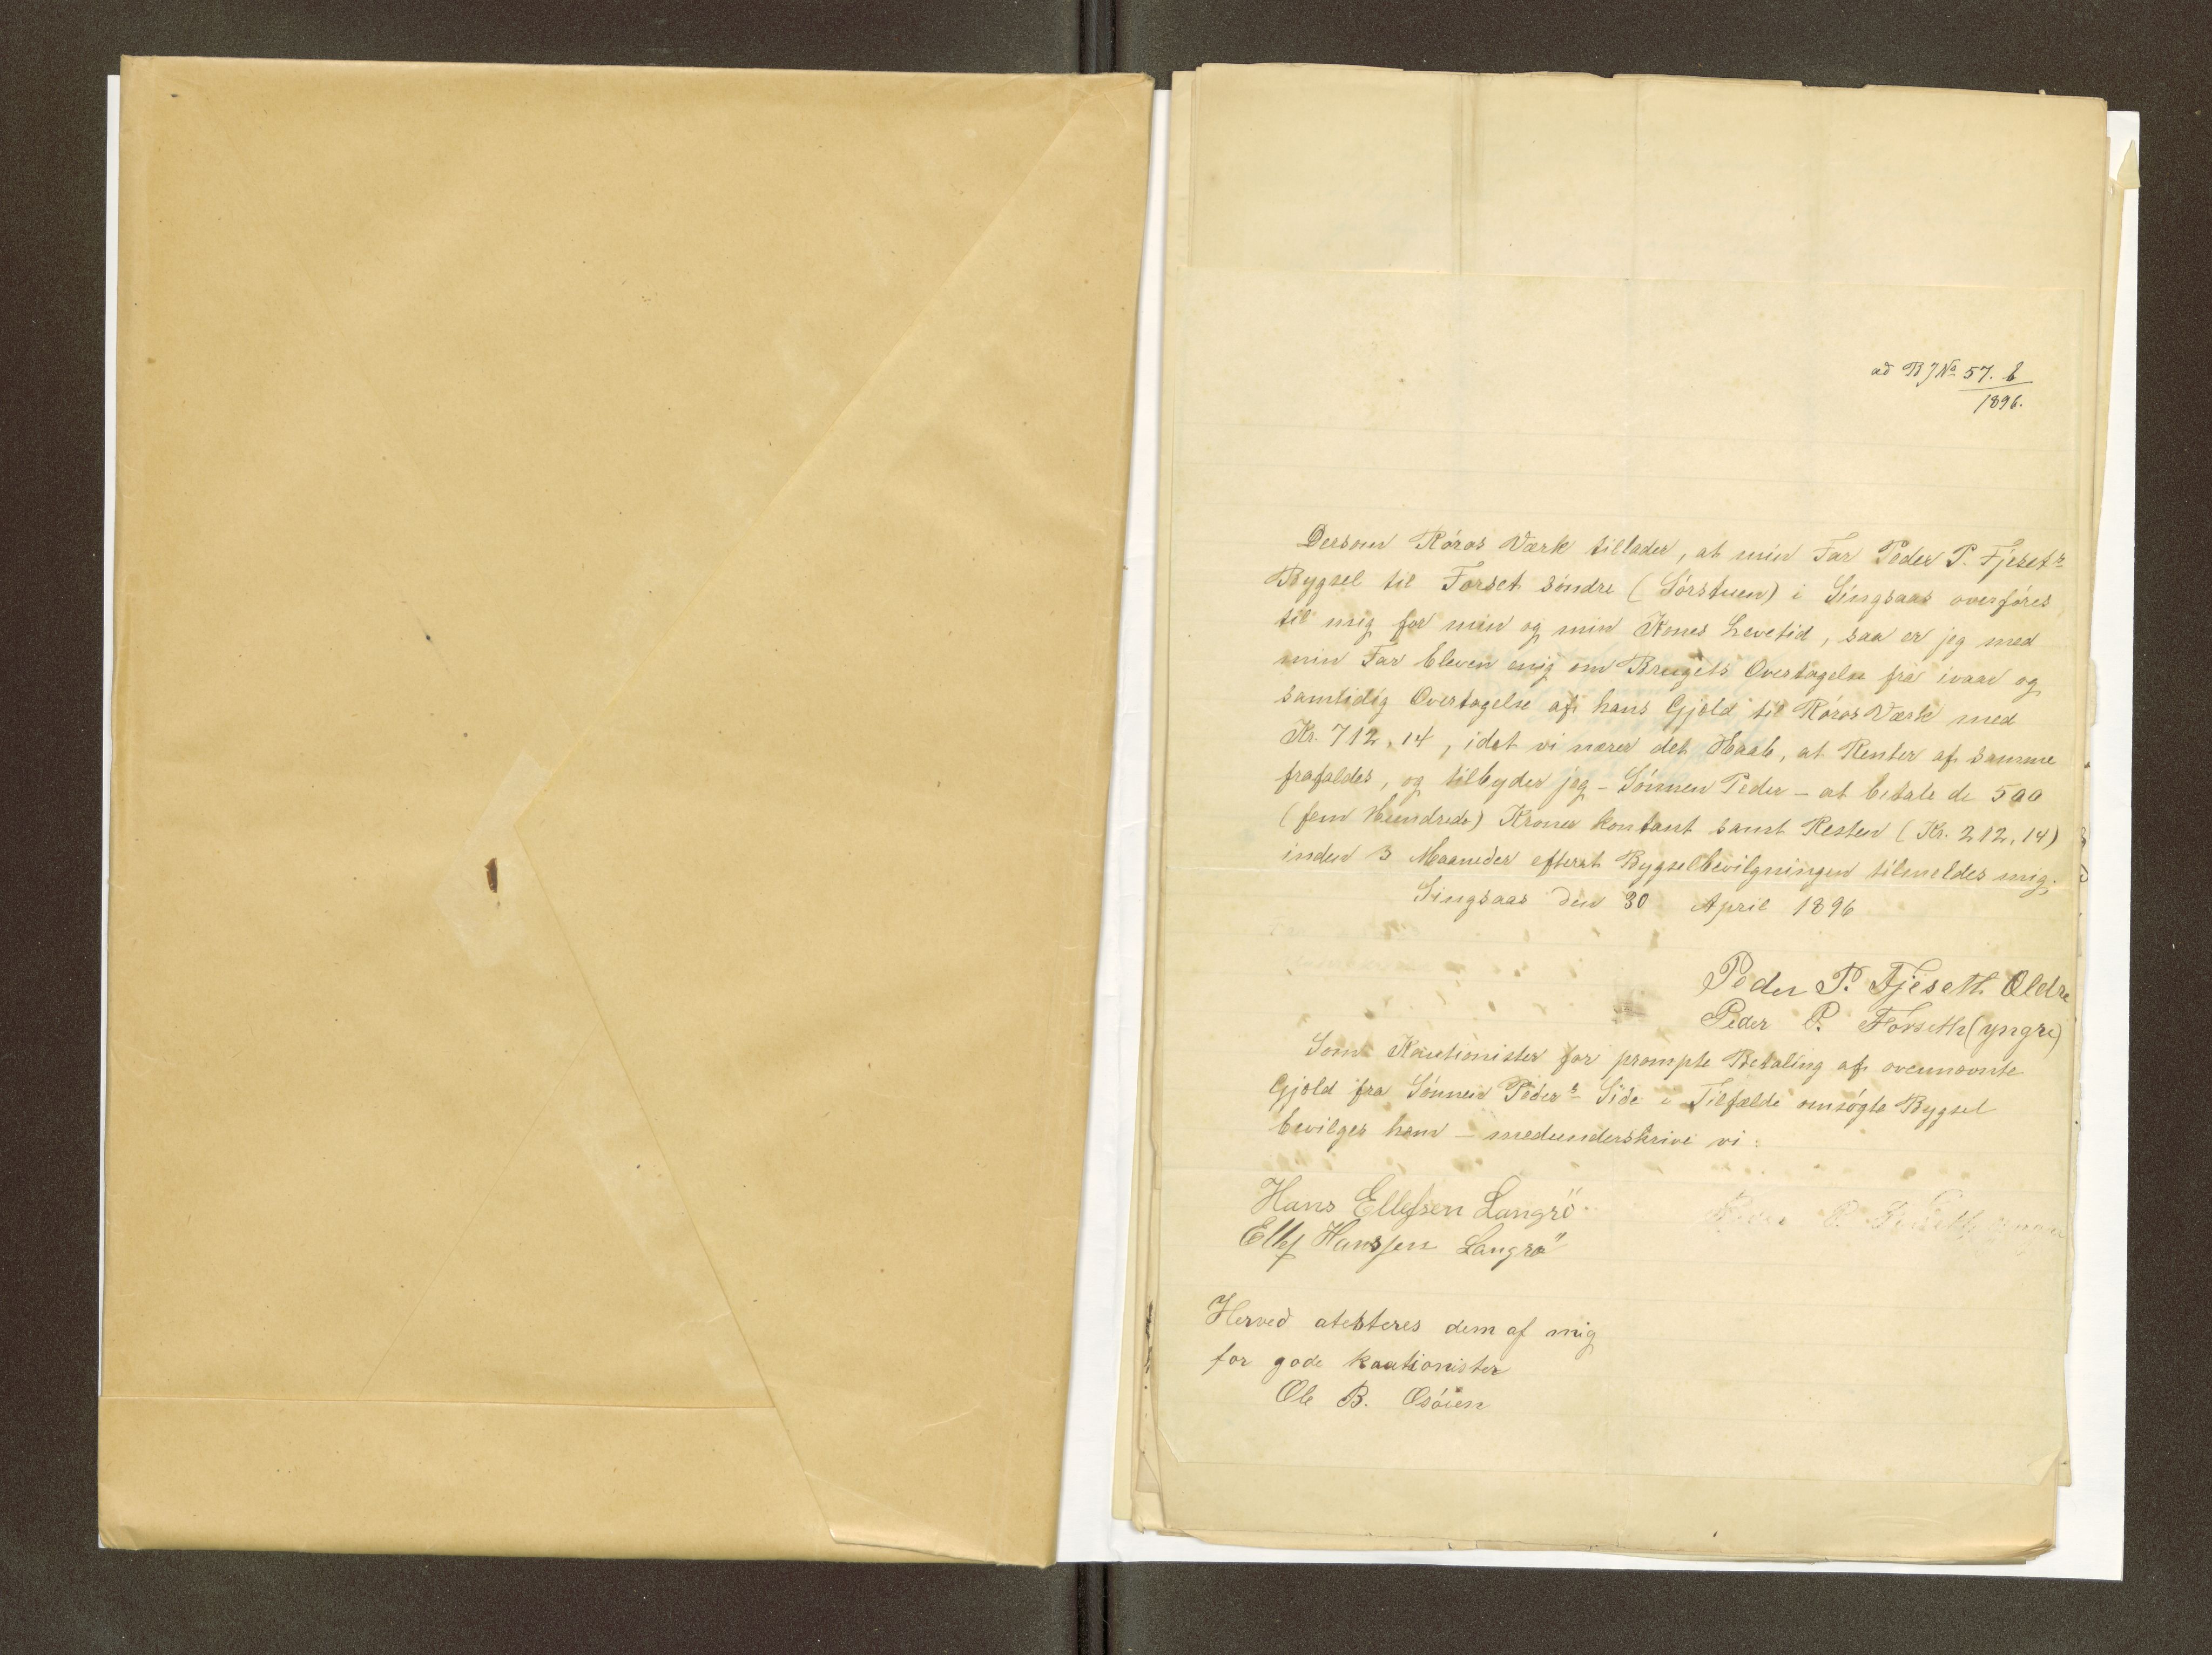 ad B J No 57. b
1896.
Dersom Röros Værk tillader, at min Far Peder P. Fjesets
Bygsel til Forset söndre (Sörstuen) i Singsaas overföres
til mig for min og min Kones Levetid, saa er jeg med
min Far bleven enig om Brugets Overtagelse fra ivaar og
samtidig Overtagelse af hans Gjæld til Röros Værk med
Kr. 712,14, idet vi nærer det Haab, at Renter af samme
frafaldes, og tilbyder jeg - Sönnen Peder - at betale de 500
(fem Hundrede) Kroner kontant samt Resten (Kr. 212,14)
inden 3 Maaneder efterat Bygselbevilgningen tilmeldes mig.
Singsaas den 30 April 1896
Peder P. Fjeseth Oldre
Peder P. Förseth (yngre)
Som Kautionister for prompte Betaling af ovennævnte
Gjæld fra Sönnen Peders Side i Tilfælde omsögte Bygsel
bevilges ham - medunderskrive vi:
Hans Ellefsen Langrö
Ellef Hanssen Langrö
Herved atesteres dem af mig
for gode kautionister
Ole B. Osöien